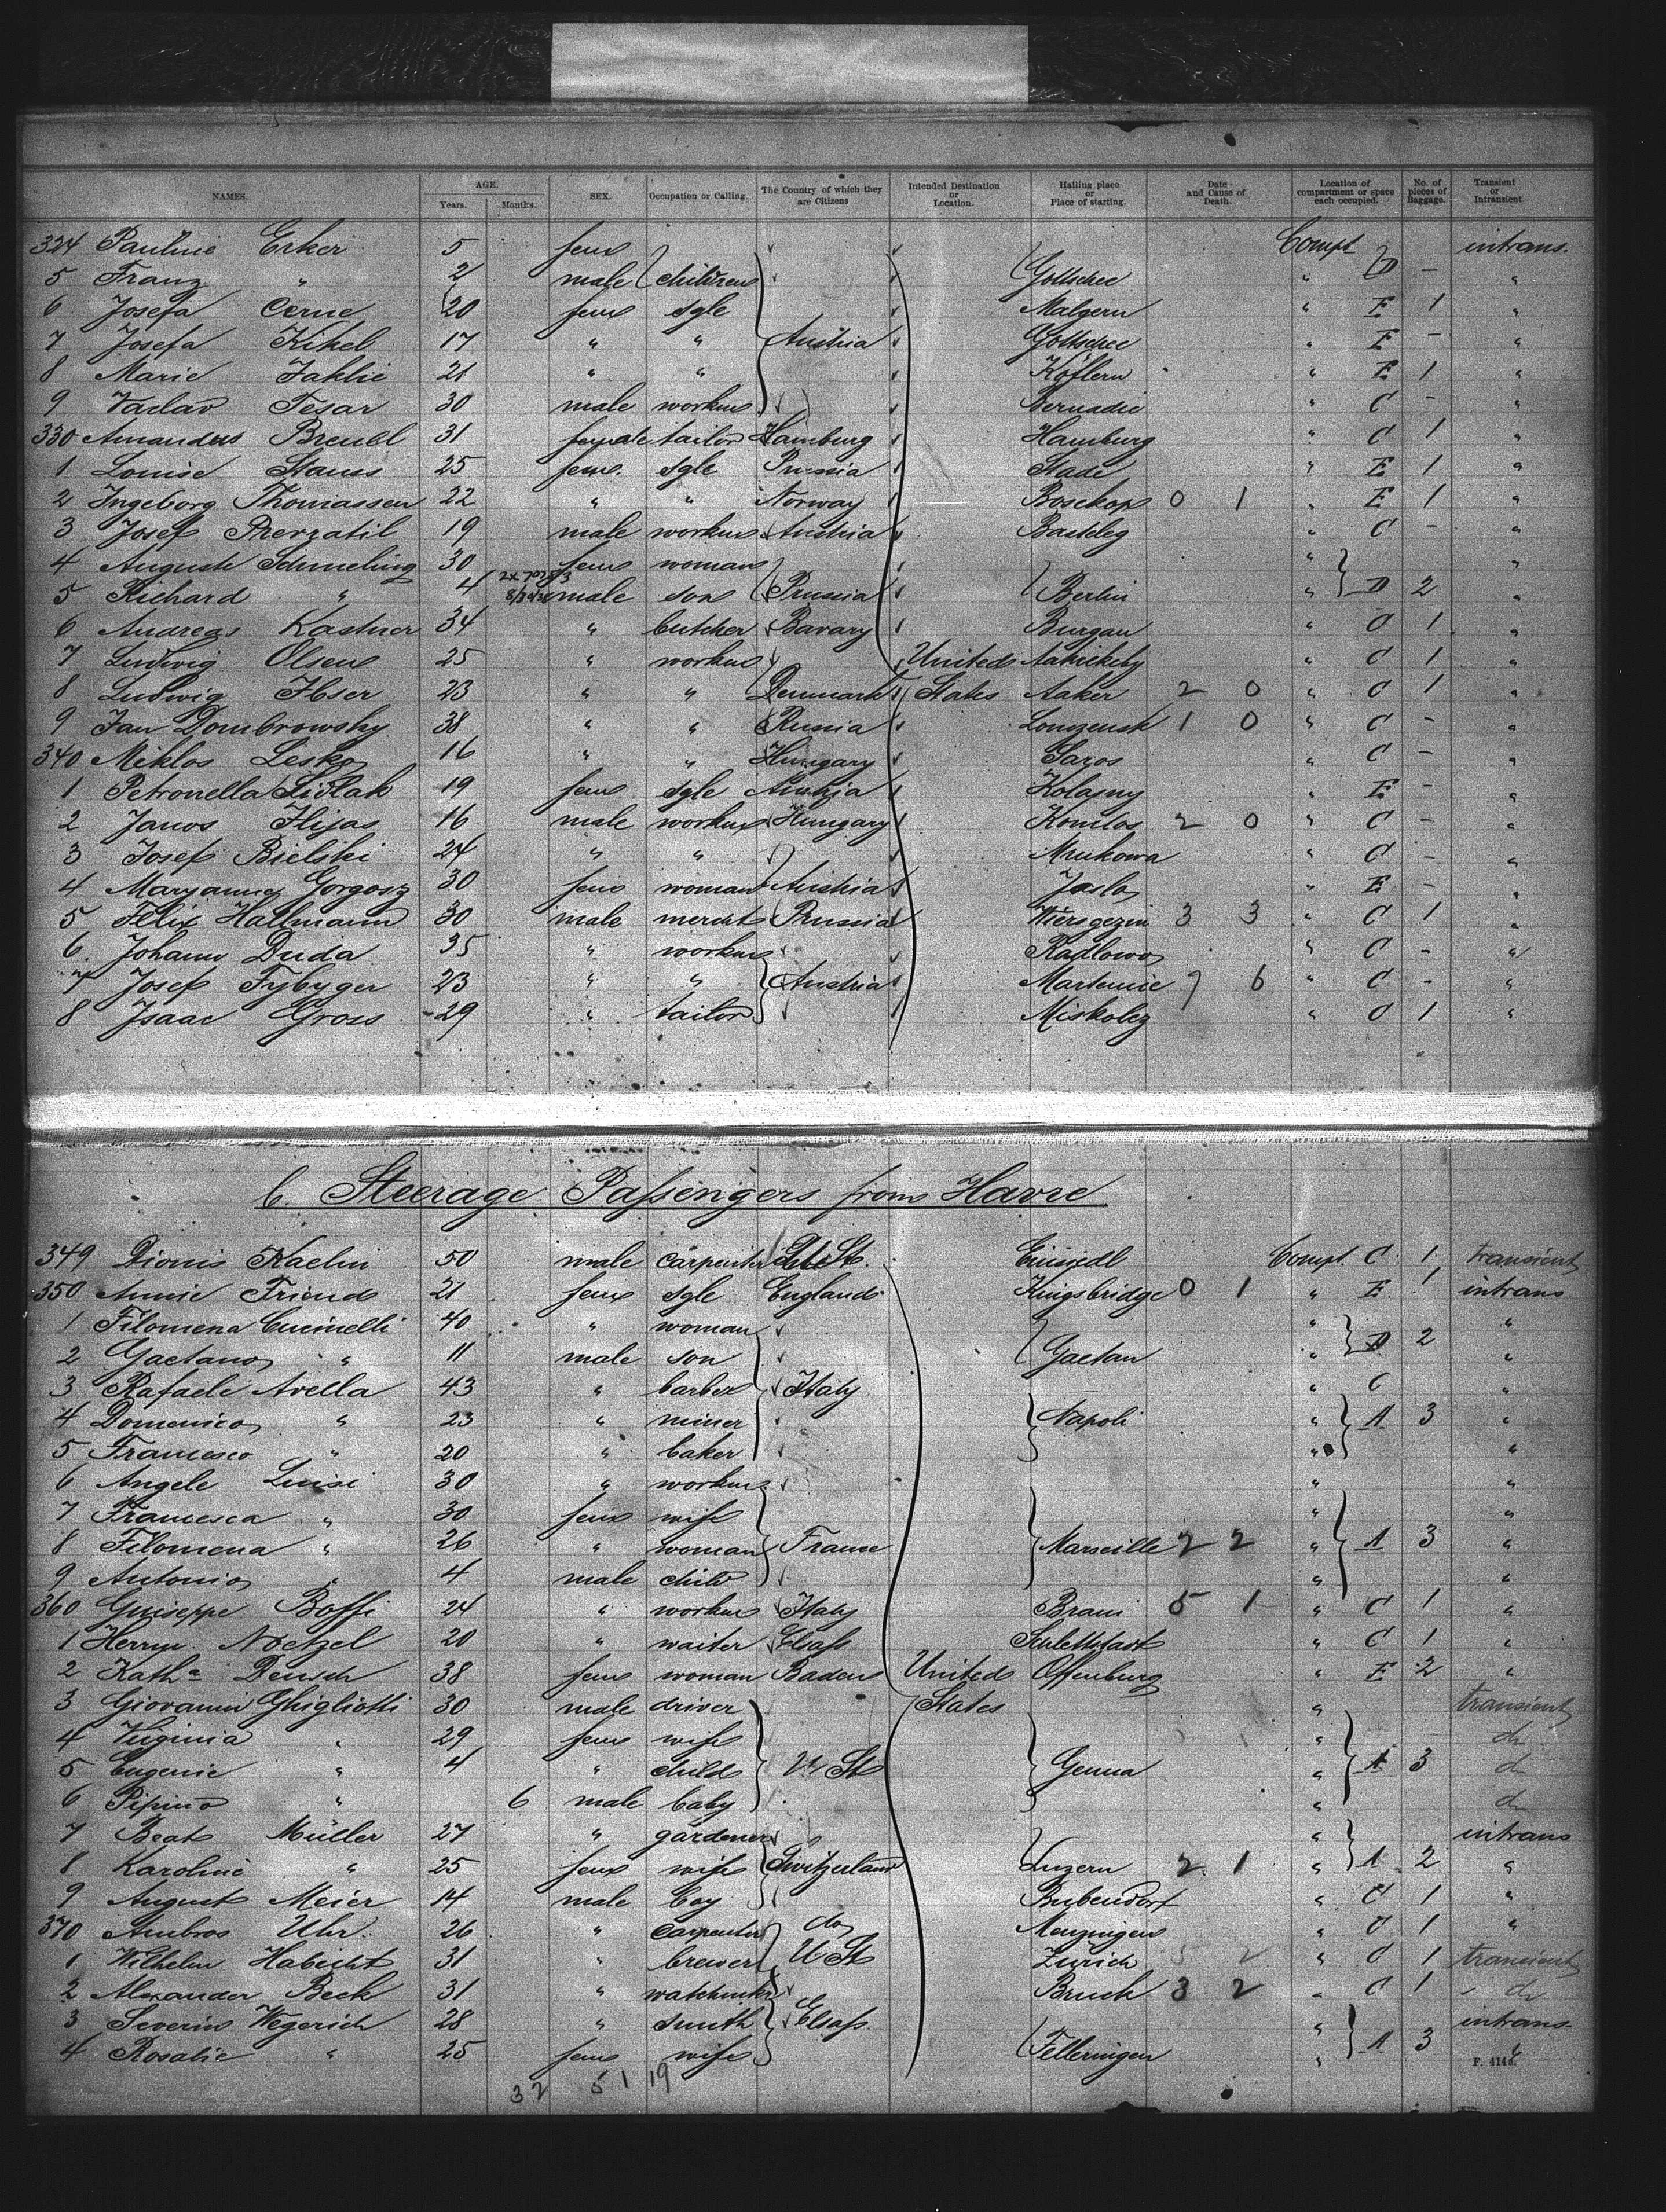 NAMES. AGE. Years. Months. SEX. Occupation or Calling. The Country of which they are Citizens Intended Destination or Location. Hailing place or Place of starting. Date and Cause of Death. Location of compartment or space each occupied. No. of pieces of Baggage. Transient or Intransient.
324 Pauline Erker 5 fem Compt intrans.
5 Franz " 2 male children Gottschee " D - "
6 Josefa Cerne 20 fem sgle Malgern " E 1 "
7 Josefa Kikel 17 " " Austria Gottschee " E - "
8 Marie Jaklic 21 " " Köflern " E 1 "
9 Vaclav Tesar 30 male workm " C - "
330 Amandus Breuel 31 tailor Hamburg Hamburg " C 1 "
1 Louise Stauss 25 fem. sgle Prussia Stade " E 1 "
2 Ingeborg Thomassen 22 " " Norway Bosekop 0 1 " E 1 "
3 Josef 19 male workm Austria " C - "
4 Auguste Schmeling 30 fem woman " "
5 Richard " 4 male son Prussia Berlin " D 2 "
6 Andreas Kastner 34 " butcher Bavary Burgau " C 1 "
7 Ludwig Olsen 25 " workm United Aakirkeby " C 1 "
8 Ludwig 23 " " Denmark States Aaker 2 0 " C 1 "
9 Jan Dombrowsky 38 " " Russia 1 0 " C - "
340 Miklos Lesko 16 " " Hungary Saros " C - "
1 Petronella 19 fem sgle Austria " E - "
2 Janos Ilyas 16 male workm Hungary Komlos 2 0 " C - "
3 Josef Bielski 24 " " Mrukowa " C - "
4 Maryanna Gorgosz 30 fem woman Austria Jaslo " E - "
5 Felix Hallmann 30 male mercht Prussia 3 3 " C 1 "
6 Johann Duda 35 " workm Radlowo " C - "
7 Josef Fybyger 23 " " Austria 7 6 " C - "
8 Isaac Gross 29 " tailor Miskolcz " C 1 "
b. Steerage Passengers from Havre
349 Dionis Kaelin 50 male carpenter St. Einsiedl Compt. C 1 transient
350 Annie Friend 21 fem sgle England Kingsbridge 0 1 " E 1 intrans
1 Filomena Cucinelli 40 " woman " "
2 Gaetano " 11 male son Gaetan " D 2 "
3 Rafaele Avella 43 " barber Italy " C "
4 Domenico " 23 " miner Napoli " A 3 "
5 Francesco " 20 " baker " "
6 Angele Luisi 30 " workm " "
7 Francesca " 30 fem wife " "
8 Filomena " 26 " woman France Marseille 2 2 " A 3 "
9 Antonio " 4 male child " "
360 Guiseppe Boffi 24 " workm Italy 5 1 " C 1 "
1 Herrm. Noetzel 20 " waiter Elsass Schlettstadt " C 1 "
2 Katha Deusch 38 fem woman Baden United Offenburg " E 2 "
3 Giovanni Ghigliotti 30 male driver States " transient
4 Virginia " 29 fem wife " do
5 Eugenie " 4 " child U St Genua " A 3 do
6 Pipino " 6 male baby " do
7 Beat Müller 27 " gardener " intrans
8 Karoline " 25 fem wife Switzerland Luzern 2 1 " A 2 "
9 August Meier 14 male boy Bubendorf " C 1 "
370 Ambros Uhr. 26 " carpenter do Menzingen " C 1 "
1 Wilhelm Habicht 31 " brewer U St Zurich 5 2 " C 1 transient
2 Alexander Beck 31 " Bruck 3 2 " C 1 " do
3 Severin Wegerich 28 " smith Elsass " intrans.
4 Rosalie " 25 fem wife Felleringen " A 3 "
F. 414
32 51 19